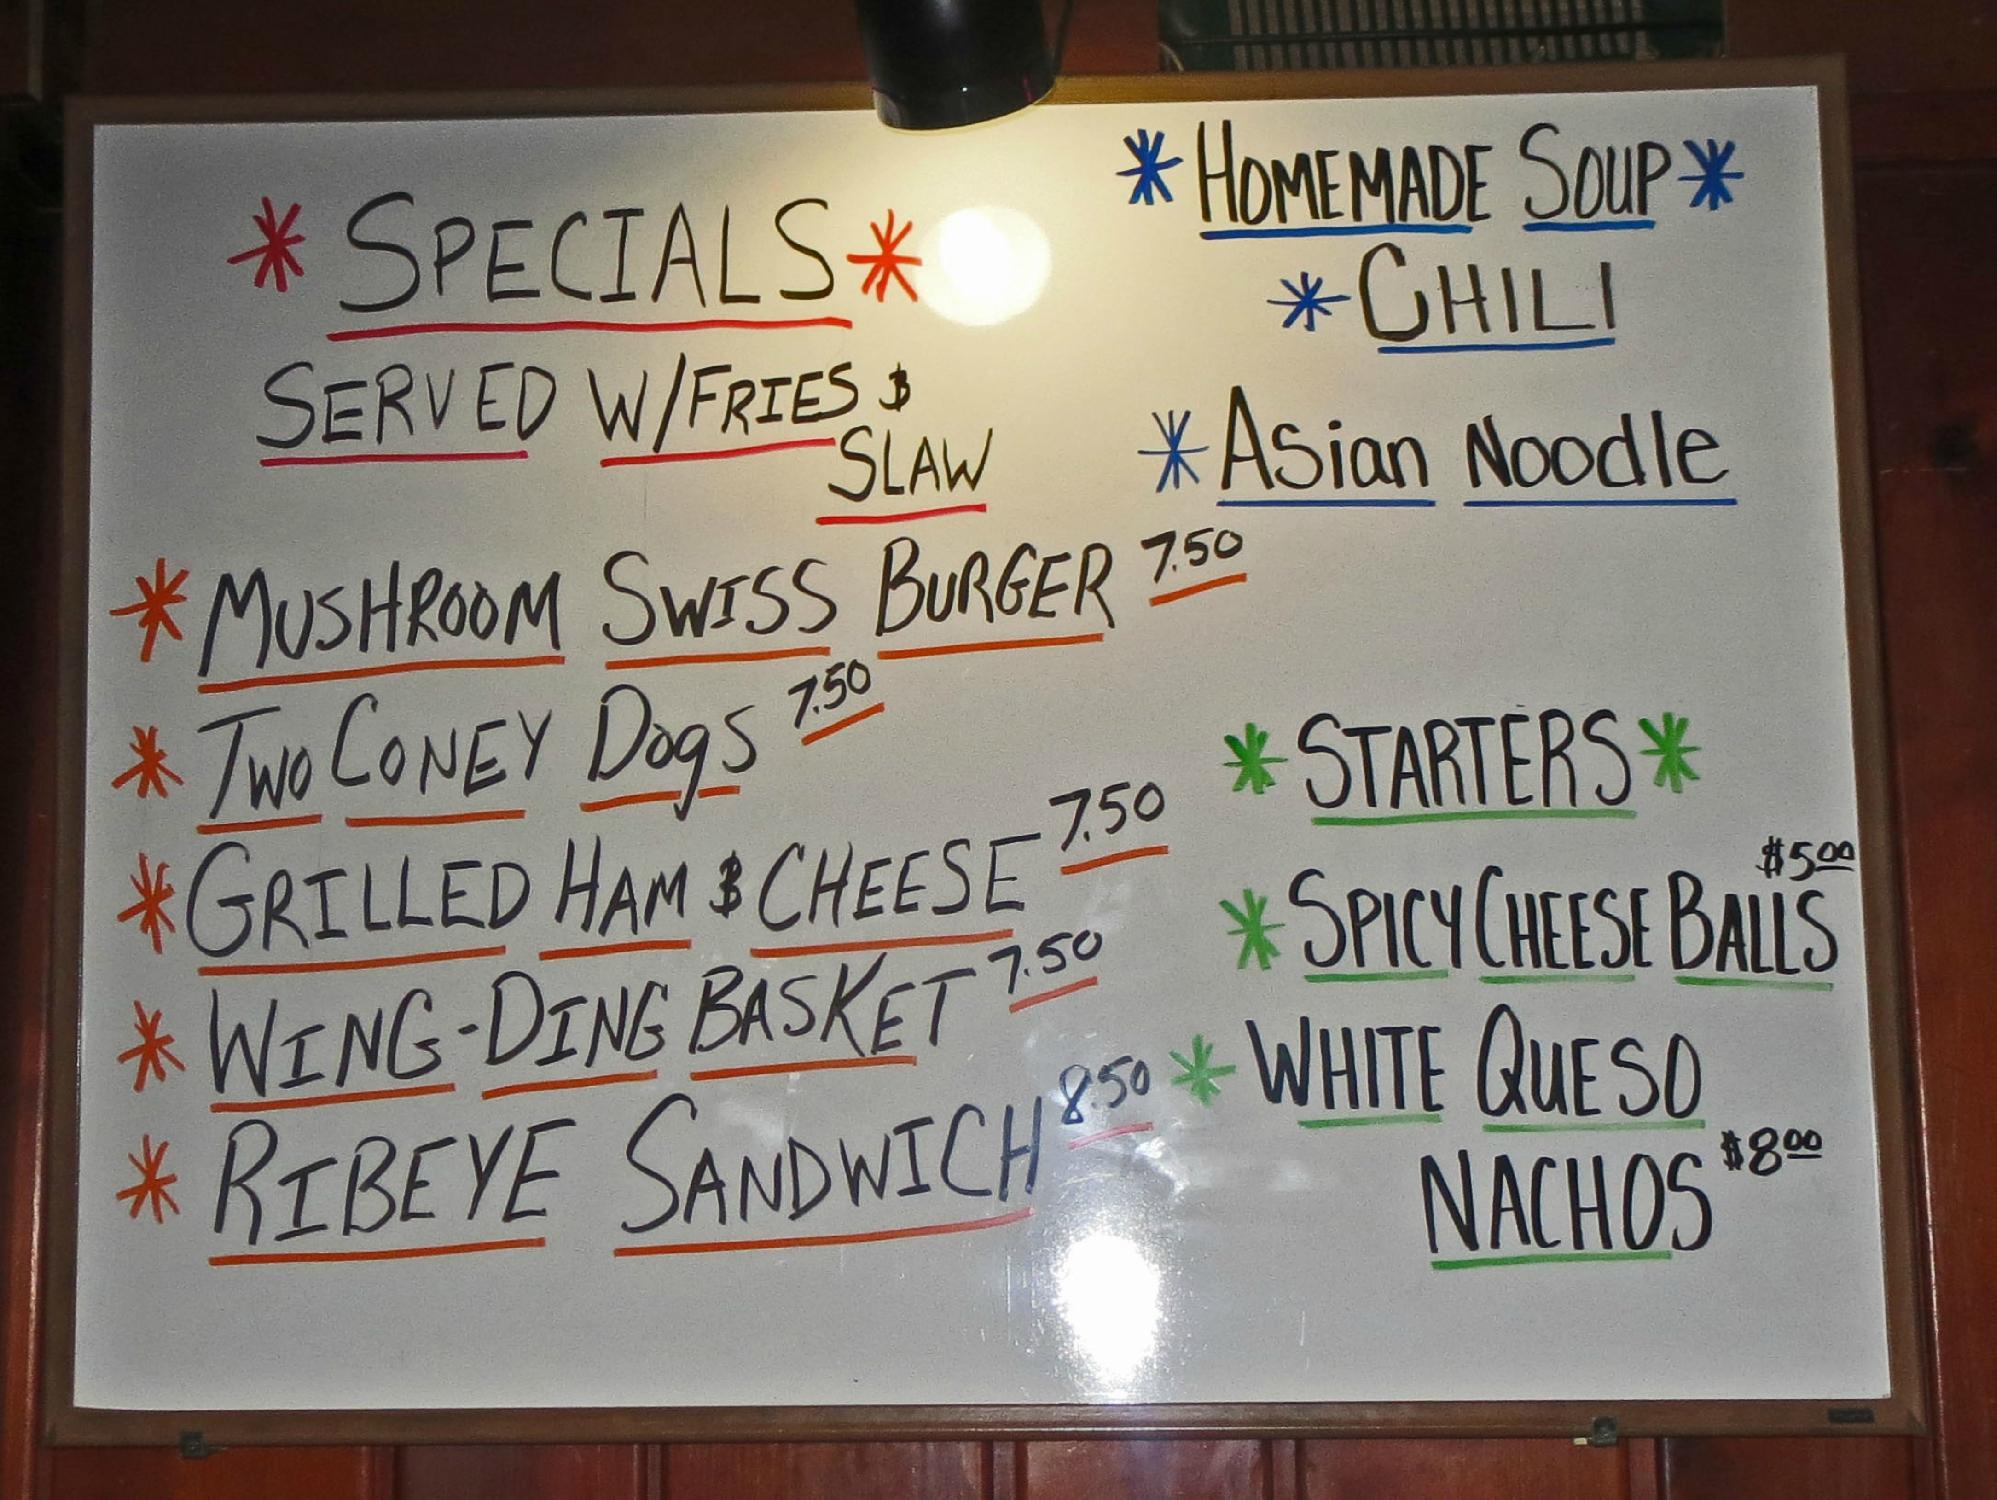 * SPECIALS *
SERVED W/FRIES &
SLAW
* MUSHROOM SWISS BURGER 7.50
* TWO CONEY DOgS 7.50
* GRILLED HAM & CHEESE 7.50
* WING-DING BASKET 7.50
* RIBEYE SANDWICH 8.50
* HOMEMADE SOUP *
* CHILI
* Asian Noodle
* STARTERS *
* SPICY CHEESE BALLS $5.00
* WHITE QUESO
NACHOS $8.00